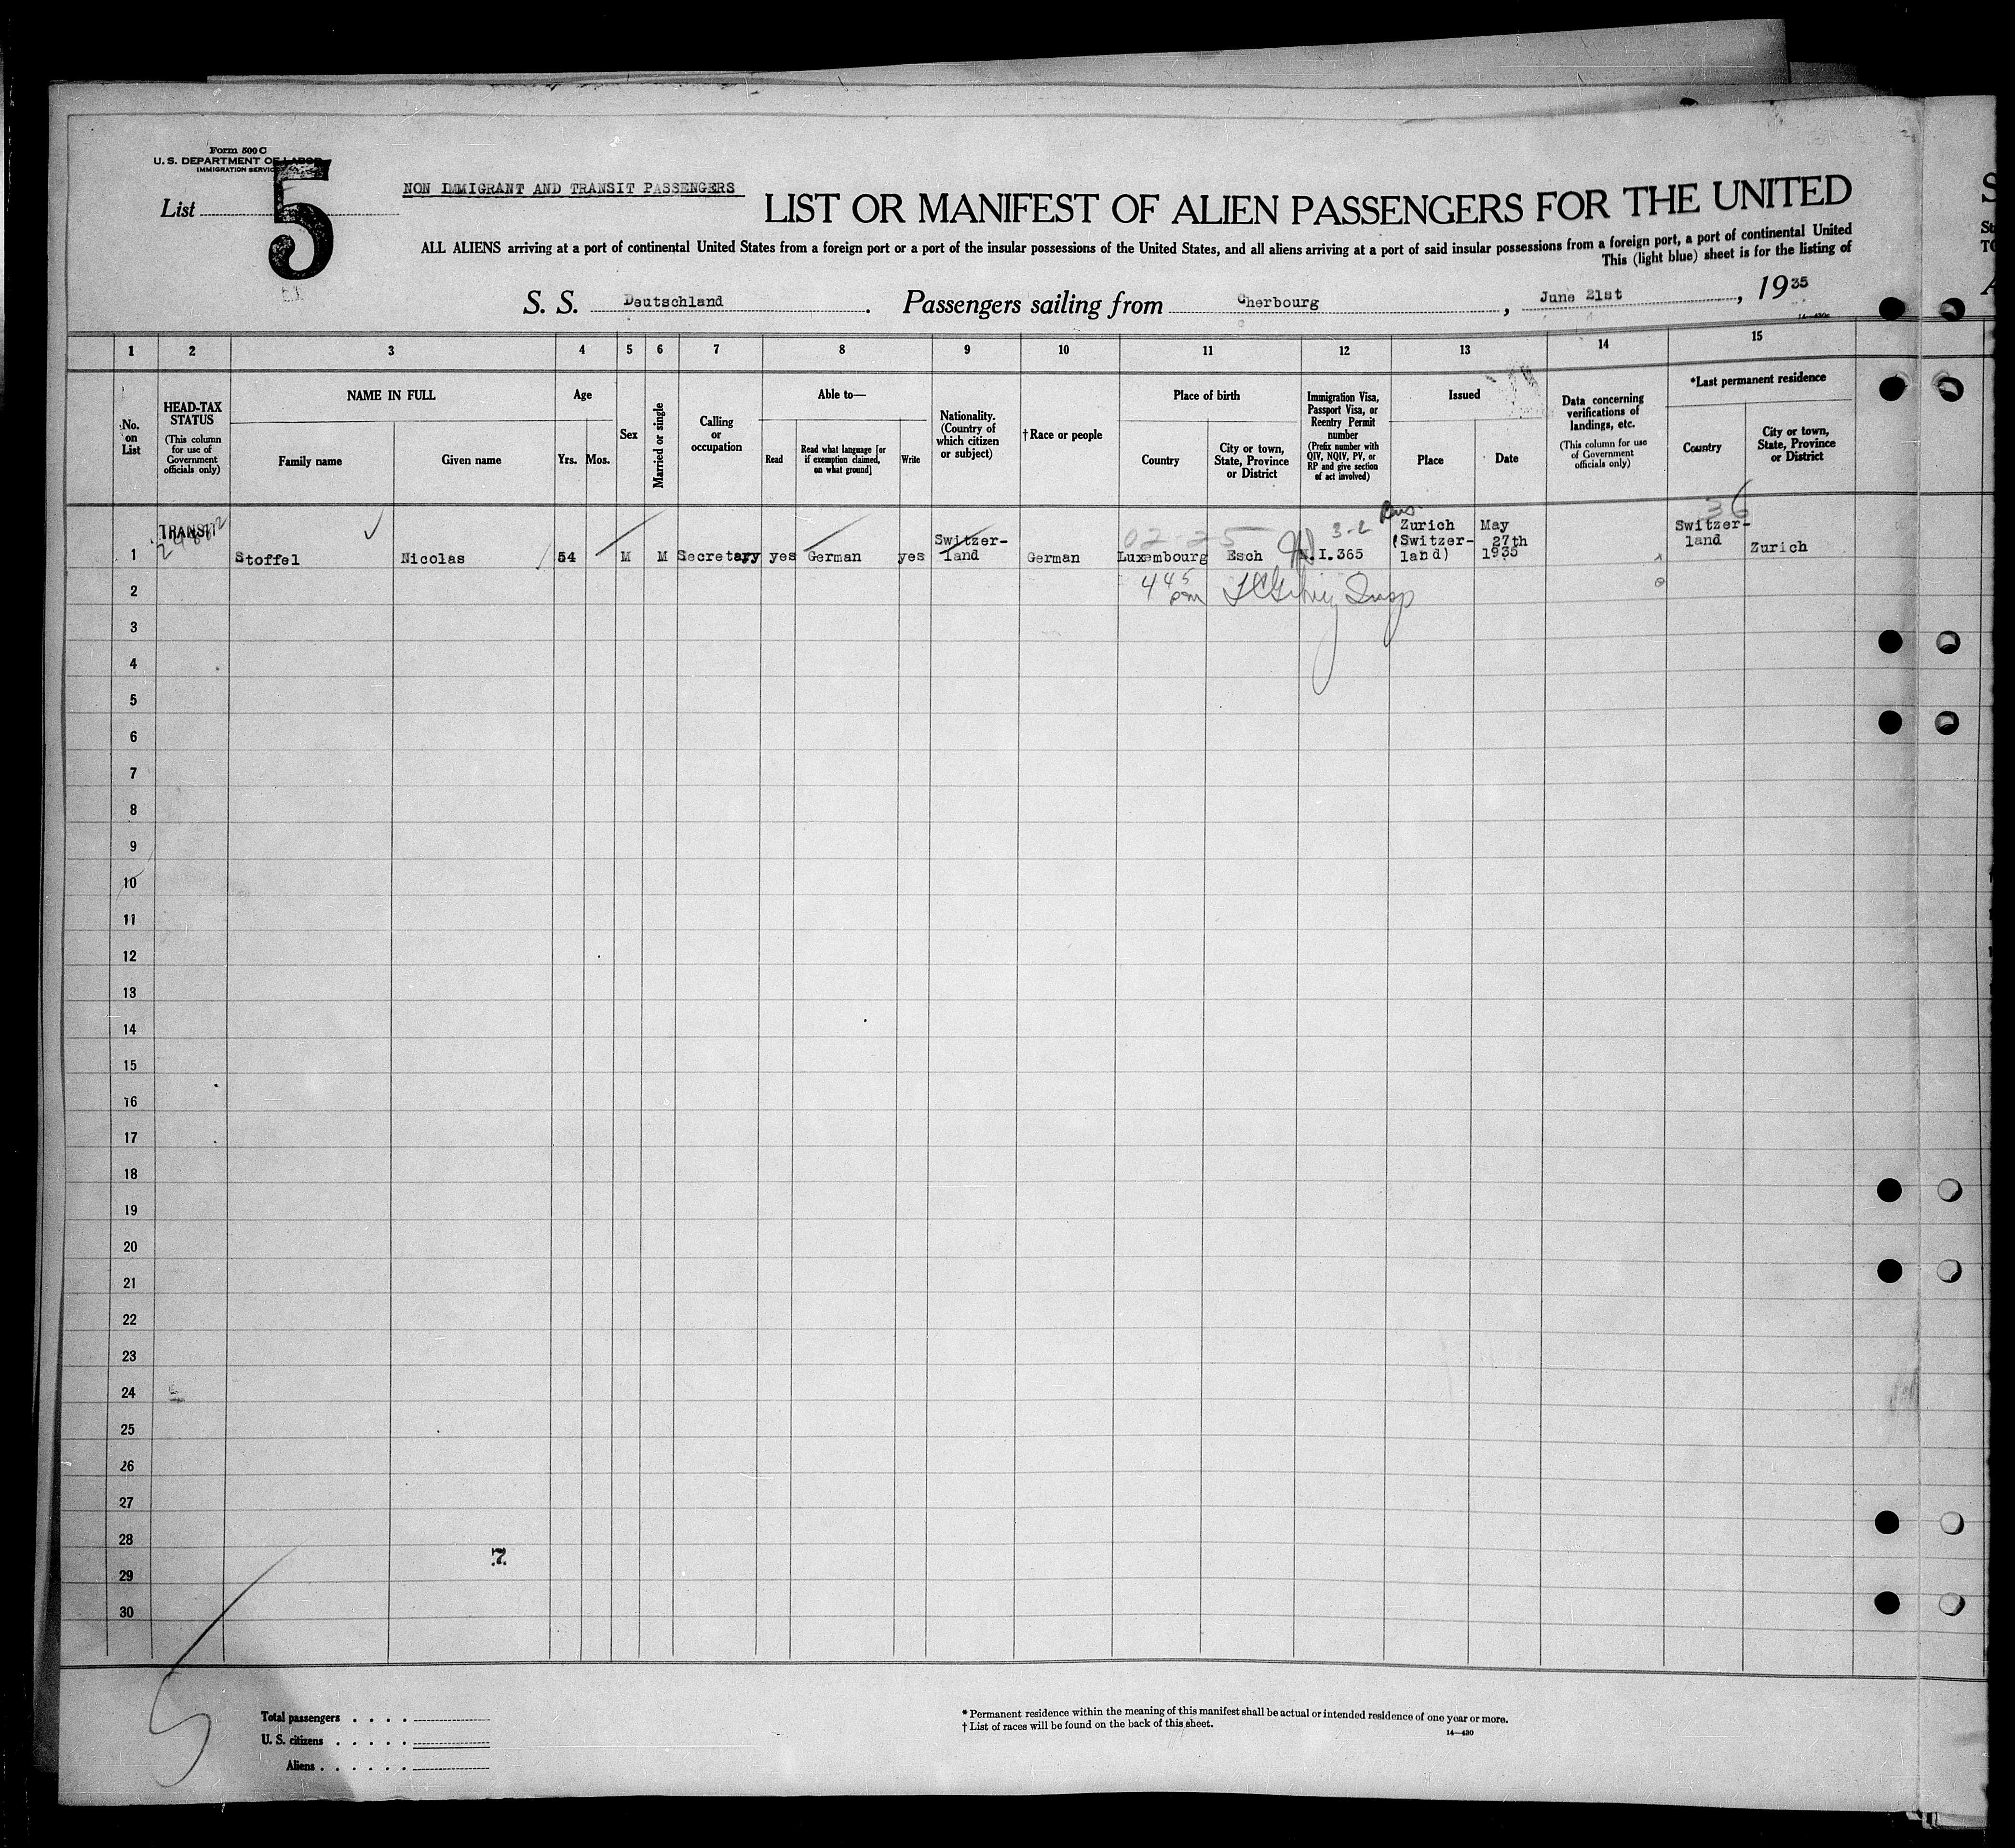 Form 500 C
U. S. DEPARTMENT OF LABOR
IMMIGRATION SERVICE
List 5
NON IMMIGRANT AND TRANSIT PASSENGERS
LIST OR MANIFEST OF ALIEN PASSENGERS FOR THE UNITED
ALL ALIENS arriving at a port of continental United States from a foreign port or a port of the insular possessions of the United States, and all aliens arriving at a port of said insular possessions from a foreign port, a port of continental United
This (light blue) sheet is for the listing of
S. S. Deutschland. Passengers sailing from Cherbourg, June 21st, 1935
1 2 3 4 5 6 7 8 9 10 11 12 13 14 15
No. on List
HEAD-TAX STATUS
(This column for use of Government officials only)
NAME IN FULL
Family name
Given name
Age
Yrs.
Mos.
Sex
Married or single
Calling or occupation
Able to—
Read
Read what language [or if exemption claimed, on what ground]
Write
Nationality. (Country of which citizen or subject)
†Race or people
Place of birth
Country
City or town, State, Province or District
Immigration Visa, Passport Visa, or Reentry Permit number
(Prefix number with QIV, NQIV, PV, or RP and give section of act involved)
Issued
Place
Date
Data concerning verifications of landings, etc.
(This column for use of Government officials only)
*Last permanent residence
Country
City or town, State, Province or District
1 TRANSIT Stoffel Nicolas 54 M M Secretary yes German yes Switzer-land German Luxembourg Esch N.I.365 Zurich (Switzer-land) May 27th 1935 Switzer-land Zurich
02-25 3-2 36
2 4 45 pm Insp
3
4
5
6
7
8
9
10
11
12
13
14
15
16
17
18
19
20
21
22
23
24
25
26
27
28
29
30
5
Total passengers . . . .
U. S. citizens . . . . .
Aliens . . . . . .
* Permanent residence within the meaning of this manifest shall be actual or intended residence of one year or more.
† List of races will be found on the back of this sheet.
14—430